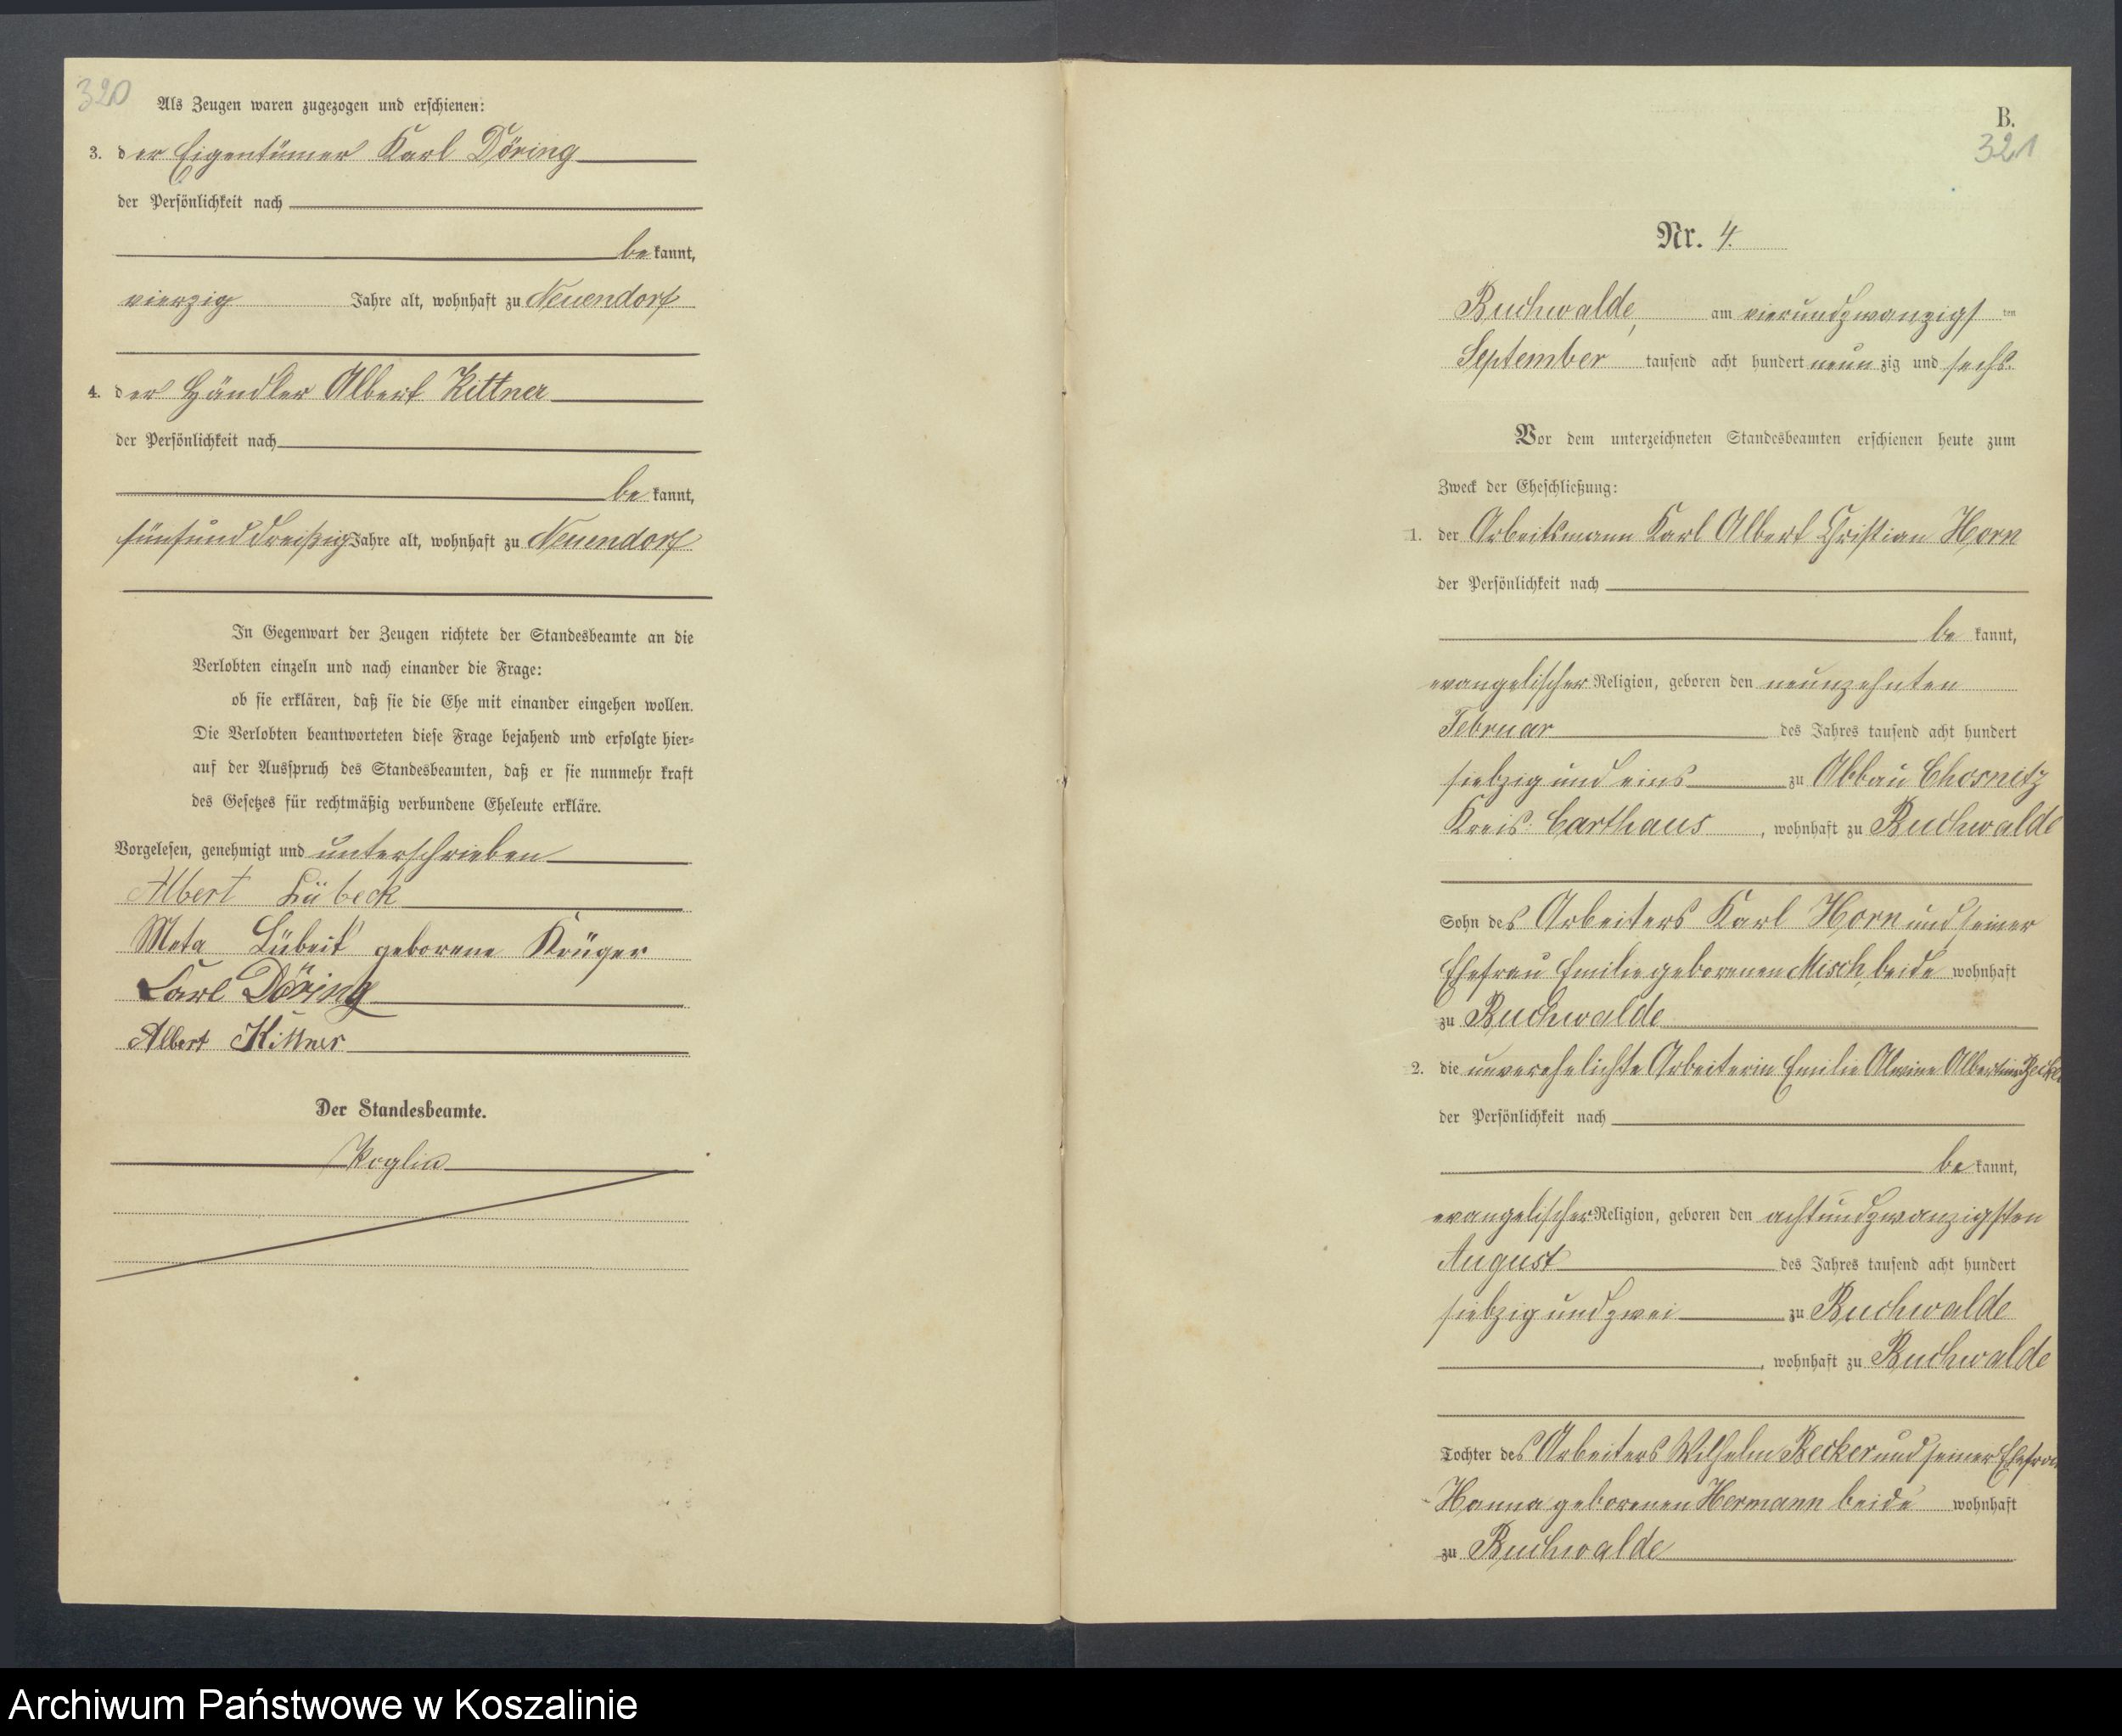 320
Als Zeugen waren zugezogen und erschienen:
3. der Eigentümer Karl Döring
der Persönlichkeit nach
bekannt,
vierzig Jahre alt, wohnhaft zu Neuendorf
4. der Händler Albert Kittner
der Persönlichkeit nach
bekannt,
fünfunddreißig Jahre alt, wohnhaft zu Neuendorf
In Gegenwart der Zeugen richtete der Standesbeamte an die
Verlobten einzeln und nach einander die Frage:
ob sie erklären, daß sie die Ehe mit einander eingehen wollen.
Die Verlobten beantworteten diese Frage bejahend und erfolgte hier-
auf der Ausspruch des Standesbeamten, daß er sie nunmehr kraft
des Gesetzes für rechtmäßig verbundene Eheleute erkläre.
Vorgelesen, genehmigt und unterschrieben
Albert Lübeck
Meta Lübeck geborene Krüger
Carl Döring
Albert Kittner
Der Standesbeamte.
B.
321
Nr. 4.
Buchwalde, am vierundzwanzigsten
September tausend acht hundert neunzig und sechs.
Vor dem unterzeichneten Standesbeamten erschienen heute zum
Zweck der Eheschließung:
1. der Arbeitsmann Karl Albert Christian Horn
der Persönlichkeit nach
bekannt,
evangelischer Religion, geboren den neunzehnten
Februar des Jahres tausend acht hundert
siebzig und eins zu Abbau Chosnitz
Kreis Carthaus, wohnhaft zu Buchwalde
Sohn des Arbeiters Karl Horn und seiner
Ehefrau Emilie geborenen Misch, beide wohnhaft
zu Buchwalde
2. die unverehelichte Arbeiterin Emilie Alwine Albertine Becker
der Persönlichkeit nach
bekannt,
evangelischer Religion, geboren den achtundzwanzigsten
August des Jahres tausend acht hundert
siebzig und zwei zu Buchwalde
, wohnhaft zu Buchwalde
Tochter des Arbeiters Wilhelm Becker und seiner Ehefrau
Hanna geborenen Hermann beide wohnhaft
zu Buchwalde
Archiwum Państwowe w Koszalinie